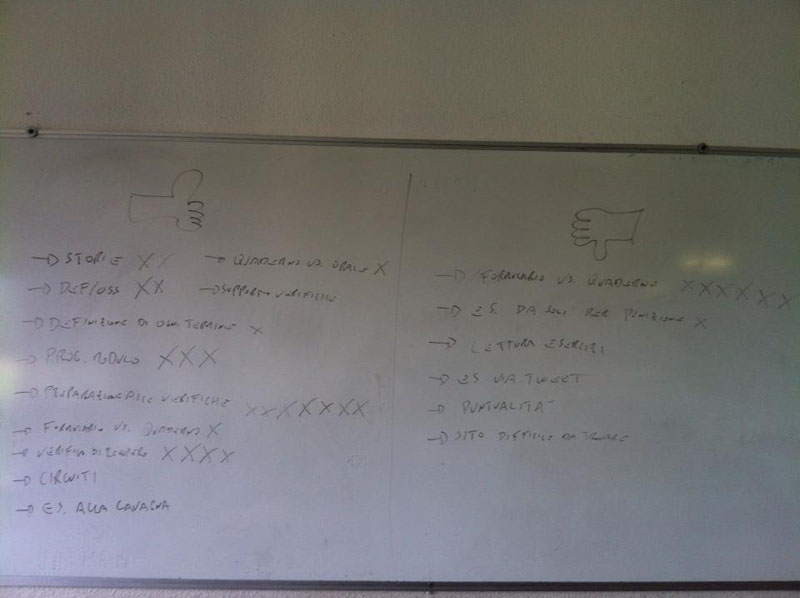 → STORIE XX
→ QUADERNO VS. ORALE X
→ DEF/OSS XX
→ SUPPORTO VERIFICHE
→ DEFINIZIONE DI OGNI TERMINE X
→ PROG. MODULO XXX
→ PREPARAZIONE ALLE VERIFICHE XXXXXXX
→ FORMULARIO VS. QUADERNO X
→ VERIFICA DI RECUPERO XXXX
→ CIRCUITI
→ ES. ALLA LAVAGNA
→ FORMULARIO VS. QUADERNO XXXXXX
→ ES. DA SOLI PER PUNIZIONE X
→ LETTURA ESERCIZI
→ ES VIA TWEET
→ PUNTUALITA'
→ SITO DIFFICILE DA TROVARE